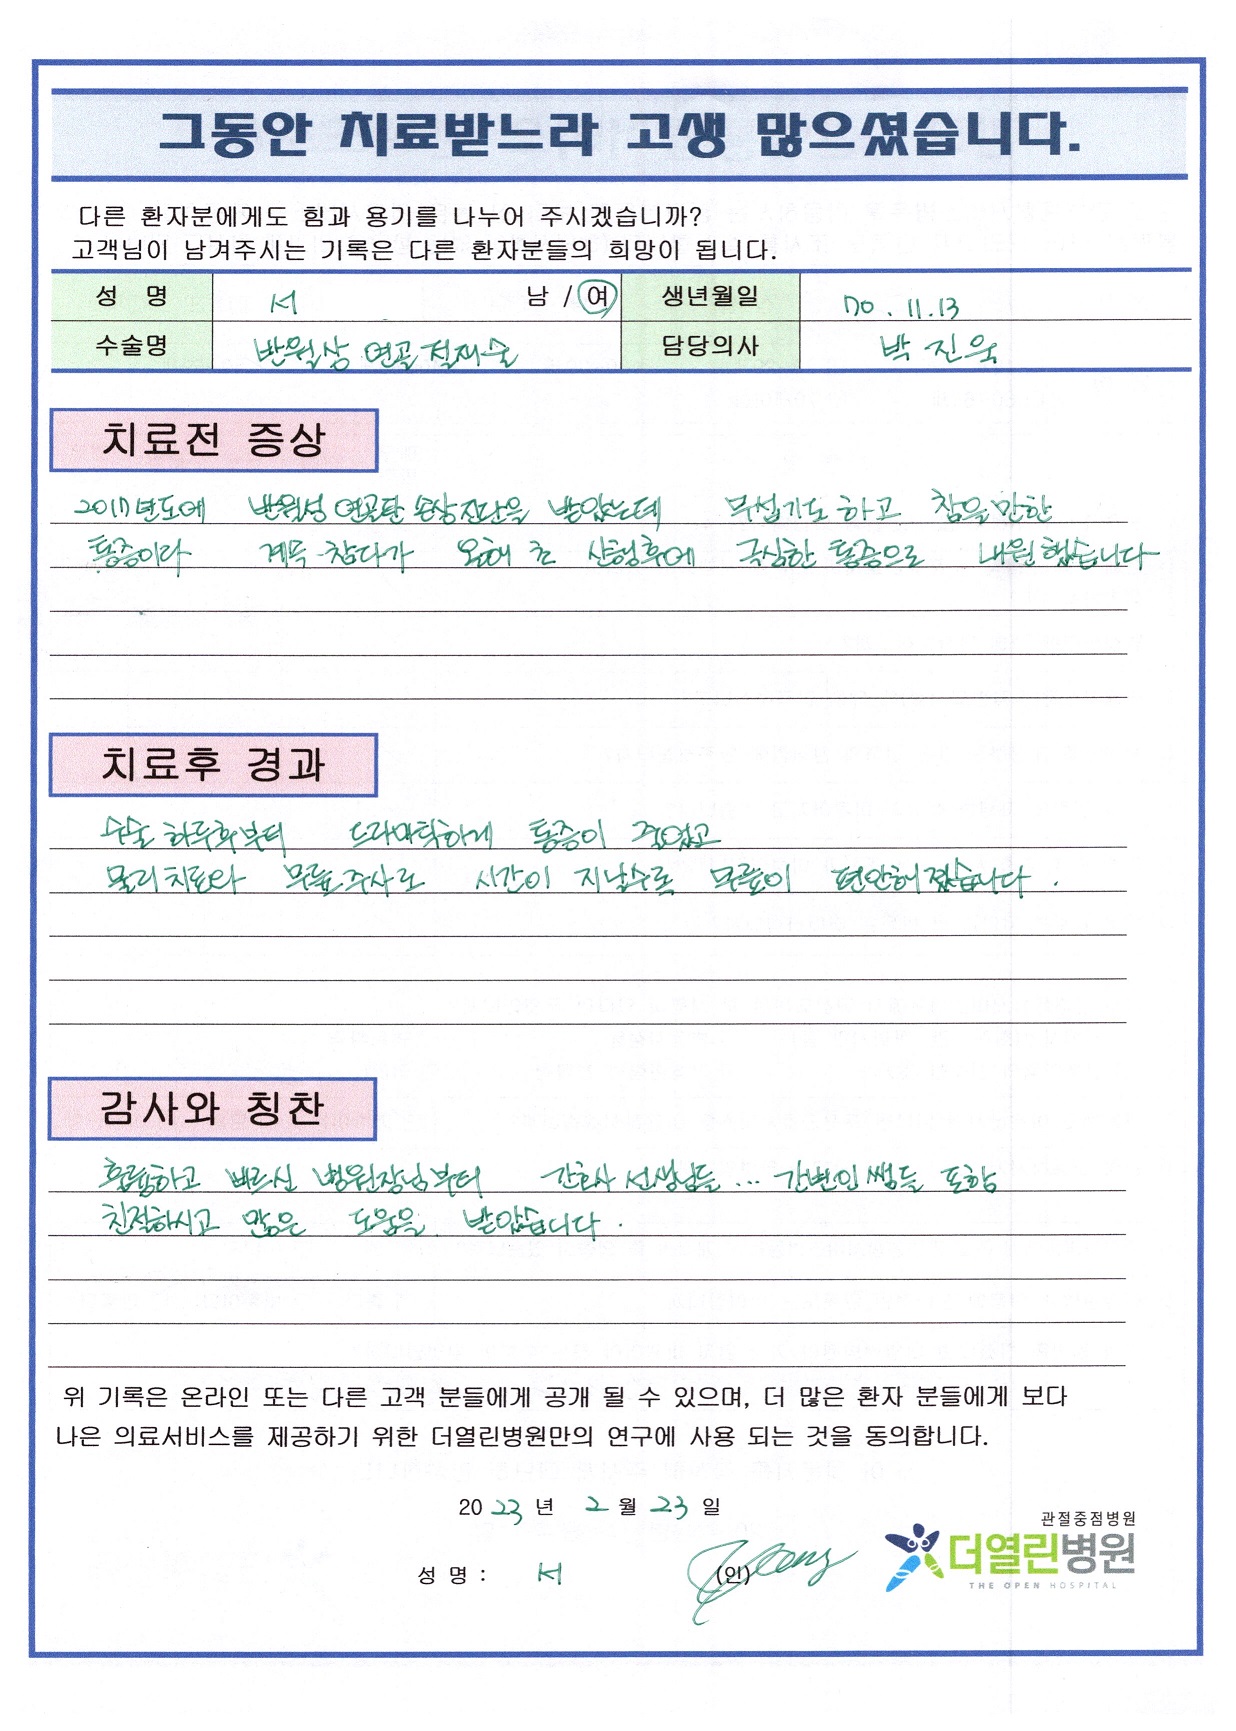 그동안 치료받느라 고생 많으셨습니다.
다른 환자분에게도 힘과 용기를 나누어 주시겠습니까?
고객님이 남겨주시는 기록은 다른 환자분들의 희망이 됩니다.
성 명 서 남 / 여 생년월일 70.11.13
수술명 반월상 연골 절제술 담당의사 박진욱
치료전 증상
2017년도에 반월성 연골판 손상진단을 받았는데 무섭기도 하고 참을만한
통증이라 계속 참다가 올해 초 산행후에 극심한 통증으로 내원했습니다
치료후 경과
수술 하루후부터 드라마틱하게 통증이 줄었고
물리치료와 무릎주사로 시간이 지날수록 무릎이 편안해졌습니다.
감사와 칭찬
훌륭하고 빠르신 병원장님부터 간호사 선생님들 ... 간병인쌤들 포함
친절하시고 많은 도움을 받았습니다.
위 기록은 온라인 또는 다른 고객 분들에게 공개 될 수 있으며, 더 많은 환자 분들에게 보다
나은 의료서비스를 제공하기 위한 더열린병원만의 연구에 사용 되는 것을 동의합니다.
2023년 2월 23일
성 명 : 서 (인)
관절중점병원
더열린병원
THE OPEN HOSPITAL